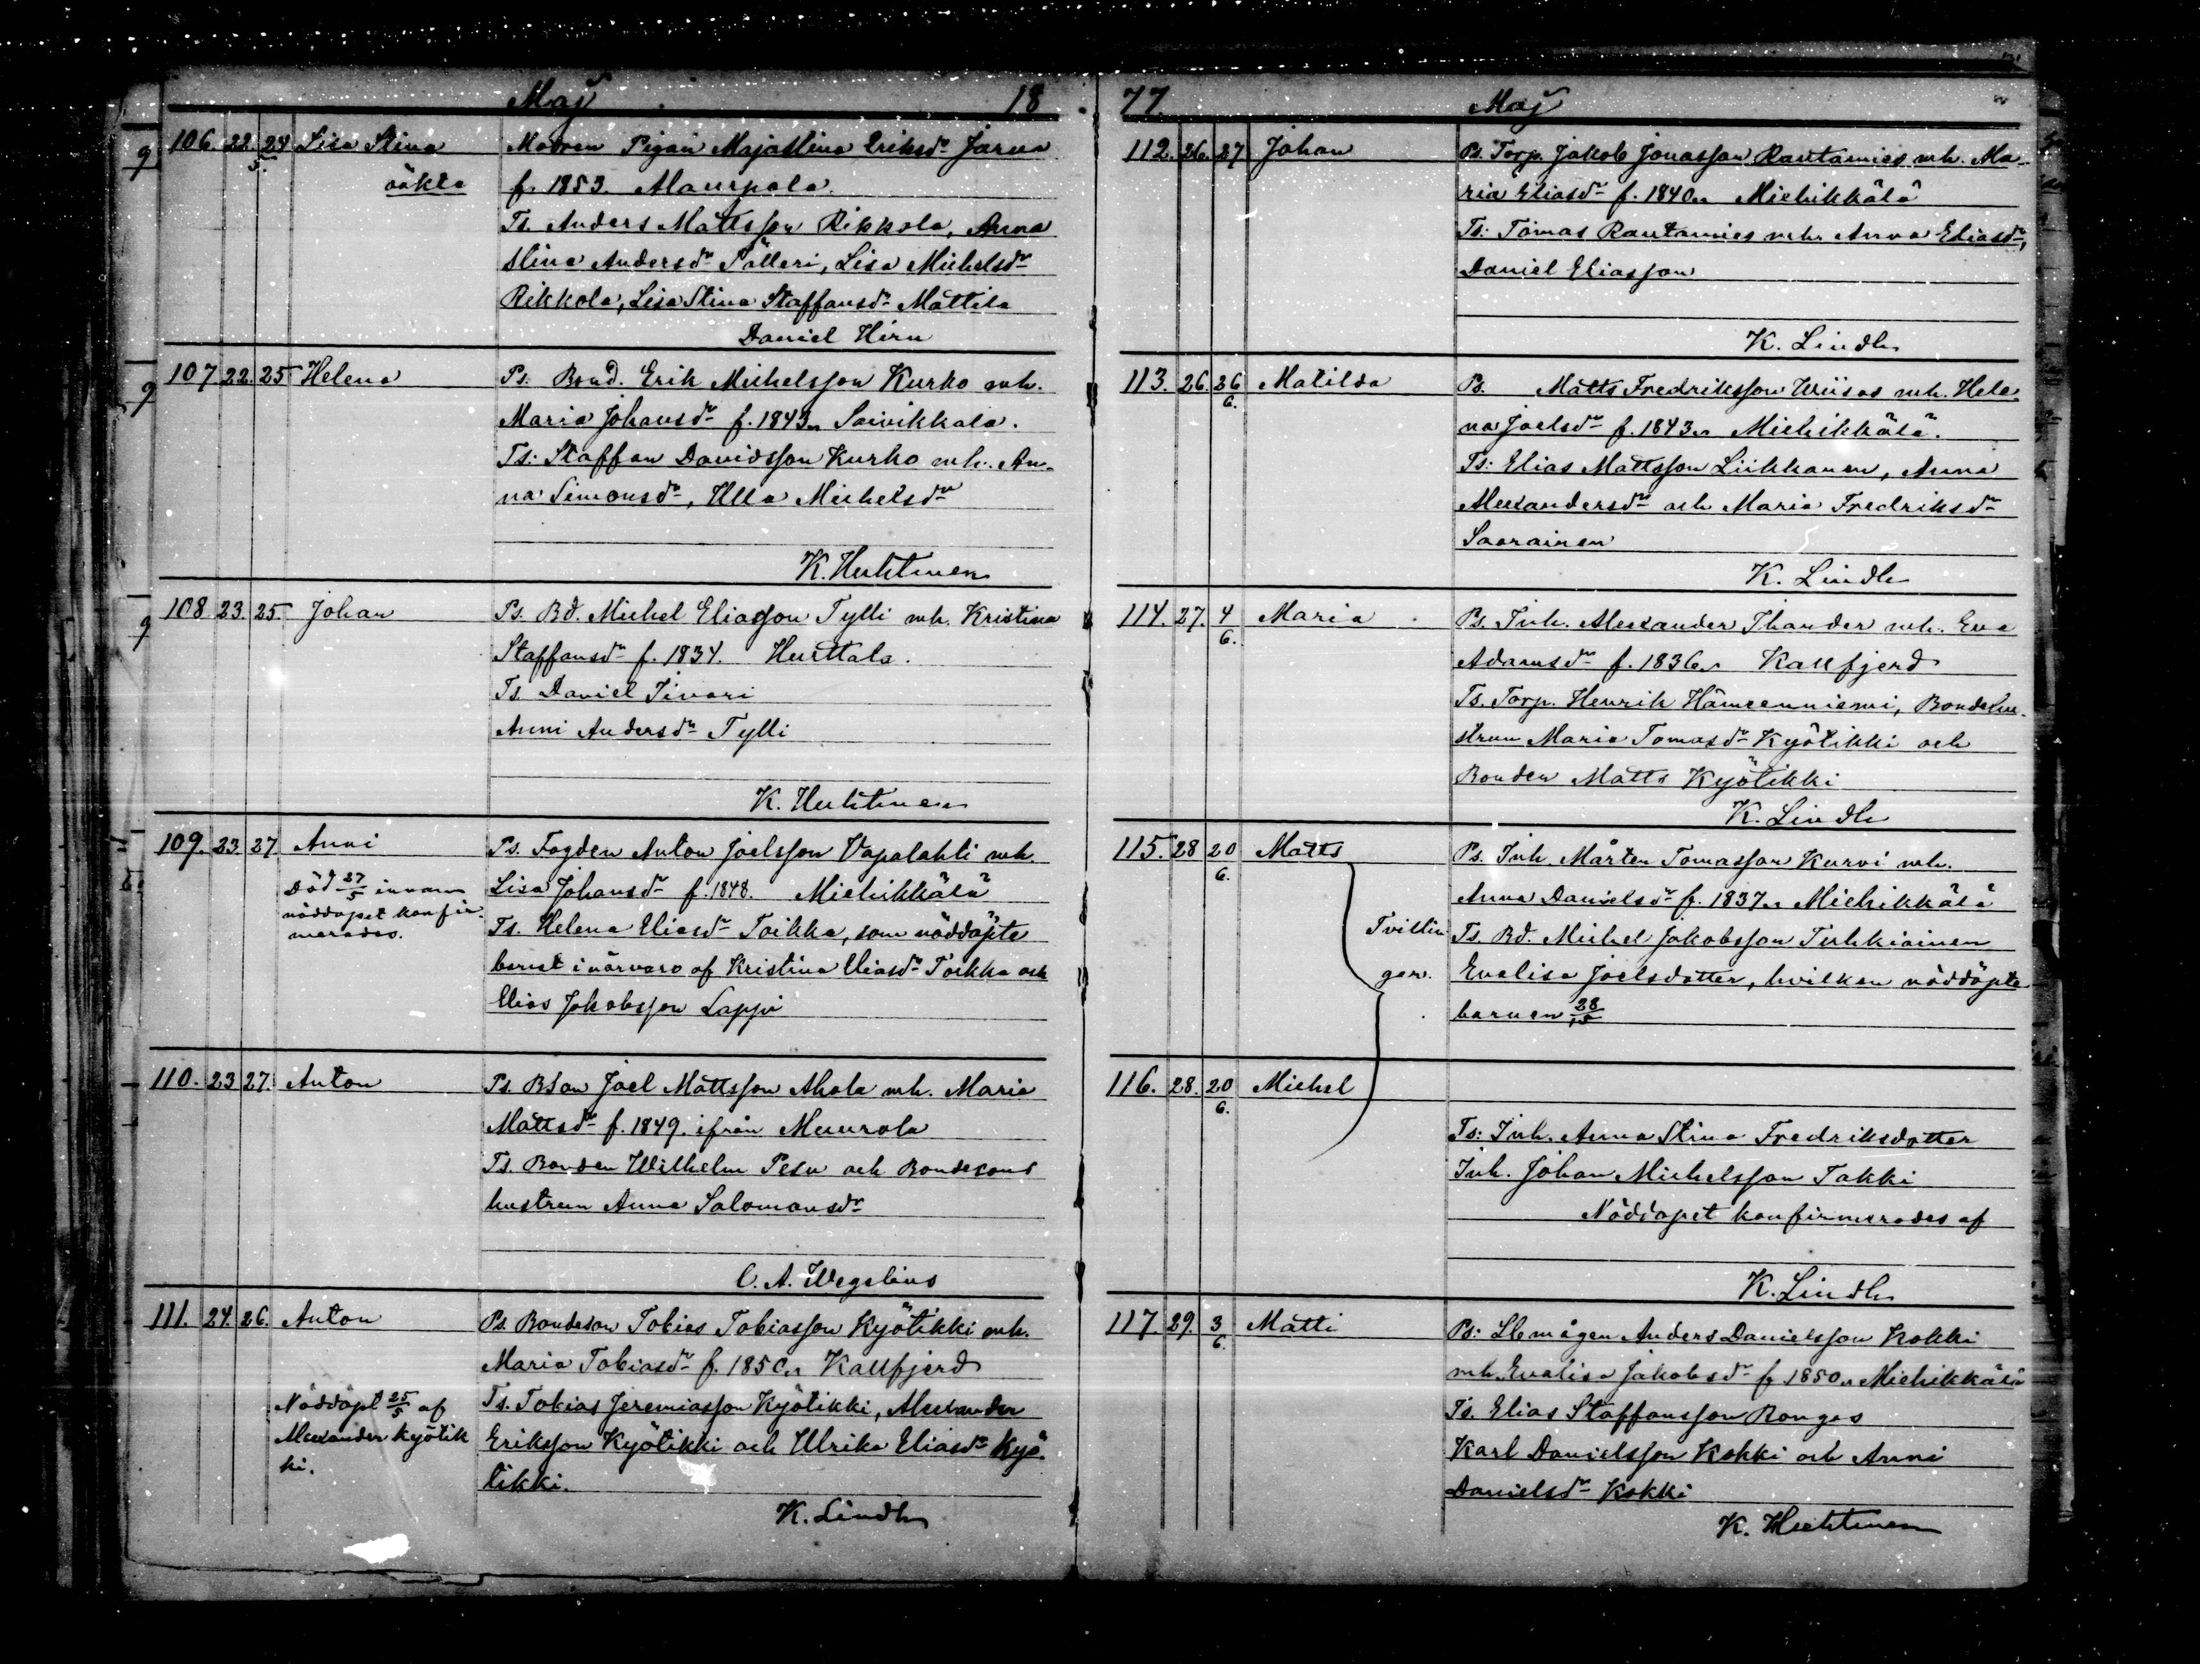 Maj 18
g 106. 22. 24/5. Lisa Stina Modren Pigan Majastina Eriksdr Jarva
oäkta f. 1853. Muurpala.
Ts. Anders Mattsson Rikkola, Anna
Stina Andersdr Pälleri, Lisa Michelsdr
Rikkola, Lisa Stina Staffansdr Mattila
Daniel Hirn
g 107 22. 25 Helena Ps. Bond. Erik Michelsson Kurko mh.
Maria Johansdr f. 1843. Saivikkala.
Ts: Staffan Davidsson Kurko mh. An-
na Simonsdr, Ulla Michelsdr
K. Huhtinen
g 108 23. 25. Johan Ps. Bd. Michel Eliasson Tylli mh. Kristina
Staffansdr f. 1834. Hurttala.
Ts. Daniel Iivari
Anni Andersdr Tylli
K. Huhtinen
109. 23. 27. Anni Ps. Fogden Anton Joelsson Vapalahti mh.
Död 27/5 innan Lisa Johansdr f. 1848. Miehikkälä
nöddopet konfir- Ts. Helena Eliasdr Toikka, som nöddöpte
merades. barnet i närvaro af Kristina Eliasdr Toikka och
Elias Jakobsson Lappi
110. 23 27. Anton Ps. Bson Joel Mattsson Ahola mh. Maria
Mattsdr f. 1849. ifrån Muurola
Ts. Bonden Wilhelm Pesu och Bondesons
hustrun Anna Salomonsdr
C. A. Wegelius
111. 24. 26. Anton Ps. Bondeson Tobias Tobiasson Kyötikki mh.
Maria Tobiasdr f. 1850. Kallfjerd
Nöddöpt 25/5 af Ts. Tobias Jeremiasson Kyötikki, Alexander
Alexander Kyötik Eriksson Kyötikki och Ulrika Eliasdr Kyö-
ki. tikki.
K. Lindh
77. Maj
112. 26. 27 Johan Ps. Torp. Jakob Jonasson Rautamies mh. Ma-
ria Eliasdr f. 1840. Miehikkälä
Ts: Tomas Rautamies mh. Anna Eliasdr,
Daniel Eliasson
K. Lindh
113. 26. 26/6. Matilda Ps. Matts Fredriksson Wiisas mh. Hele-
na Joelsdr f. 1843. Miehikkälä.
Ts: Elias Mattsson Liikkanen, Anna
Alexandersdr och Maria Fredriksdr
Saarainen
K. Lindh
114. 27. 4/6. Maria Ps. Inh. Alexander Thander mh. Eva
Adamsdr f. 1836. Kallfjerd
Ts. Torp. Henrik Hämeenniemi, Bondehu-
strun Maria Tomasdr Kyötikki och
Bonden Matts Kyötikki
K. Lindh
115. 28 20/6. Matts Ps. Inh Mårten Tomasson Kurvi mh.
Anna Danielsdr f. 1837. Miehikkälä
Tvillin Ts. Bd. Michel Jakobsson Tuhkiainen
gar. Evalisa Joelsdotter, hvilken nöddöpte
barnen 28/5
116. 28. 20/6. Michel
Ts: Inh. Anna Stina Fredriksdotter
Inh. Johan Michelsson Takki
Nöddopet konfirmerades af
K. Lindh
117. 29. 3/6. Matti Ps: Slvmågen Anders Danielsson Kokki
mh. Evalisa Jakobsdr f. 1850. Miehikkälä
Ts. Elias Staffansson Ronges
Karl Danielsson Kokki och Anni
Danielsdr Kokki
K. Huhtinen